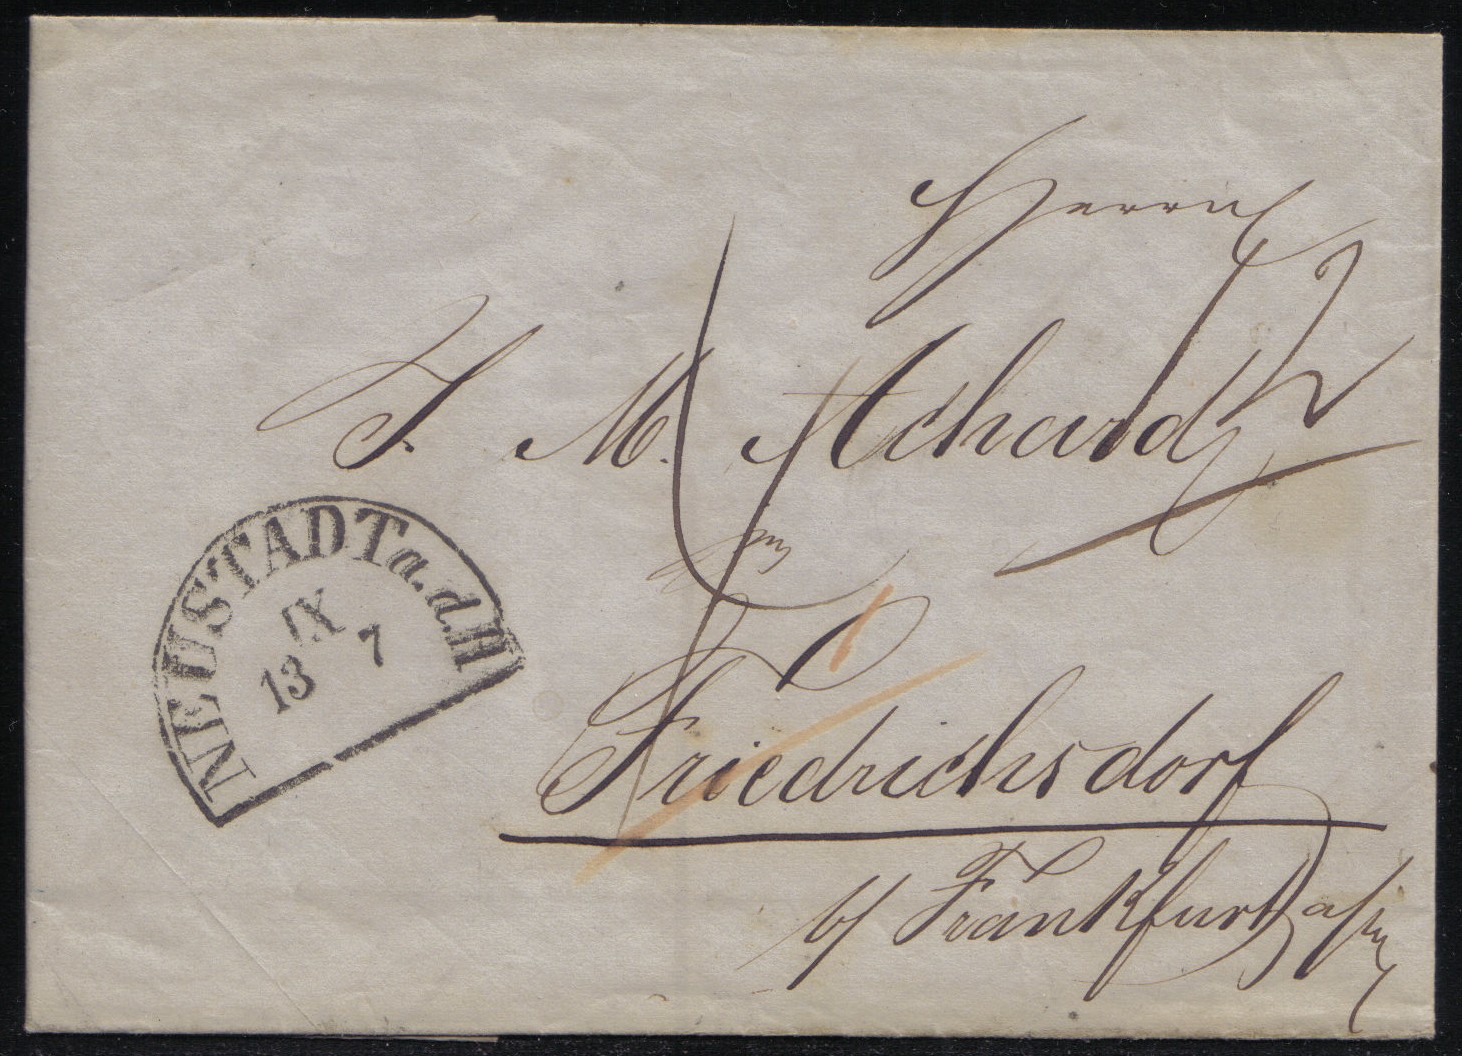 Herrn
F. M. Achard
in
Friedrichsdorf
b/ Frankfurt a/m
NEUSTADT a.d.H
IX
13 7